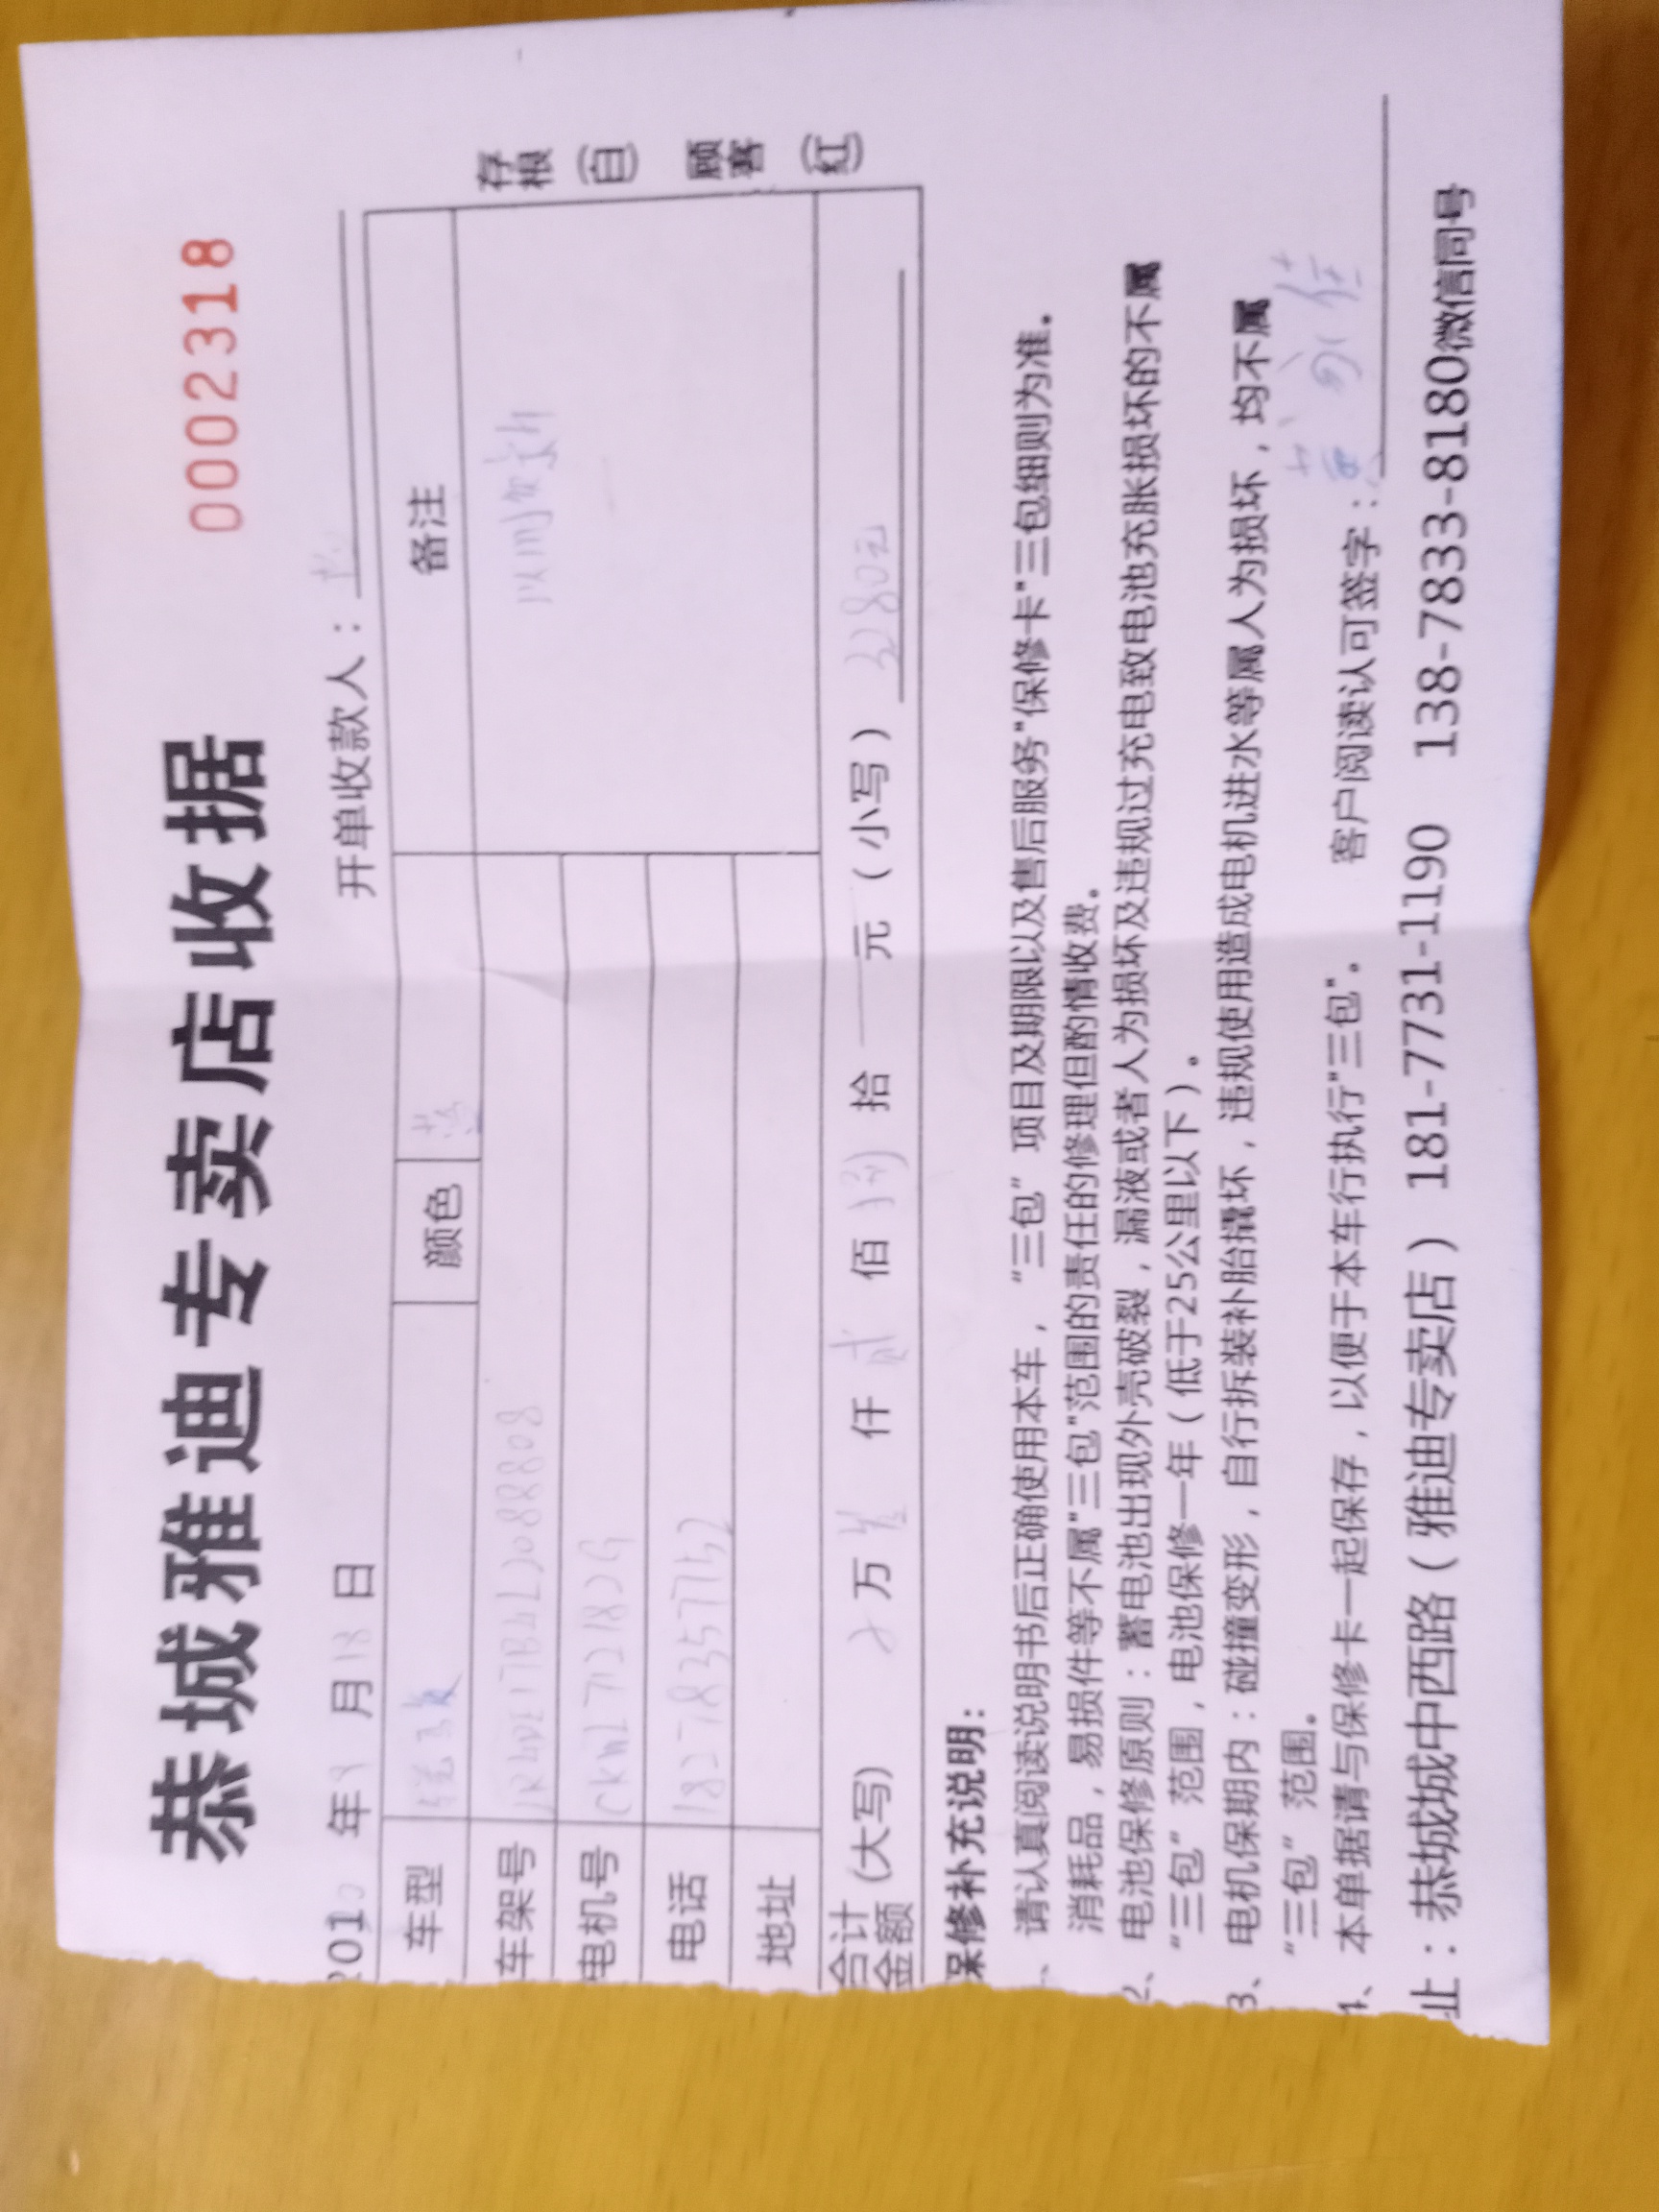 恭城雅迪专卖店收据
0002318
年9月18日
开单收款人：
车型
颜色
备注
车架号
电机号
电话 18278357152
地址
合计金额
(大写) 万 仟 贰 佰 捌 拾 元（小写）3280元
存根（白） 顾客（红）
保修补充说明:
、请认真阅读说明书后正确使用本车，“三包”项目及期限以及售后服务"保修卡"三包细则为准。
消耗品，易损件等不属"三包"范围的责任的修理但酌情收费。
2、电池保修原则：蓄电池出现外壳破裂，漏液或者人为损坏及违规过充电致电池充胀损坏的不属
“三包”范围，电池保修一年（低于25公里以下）。
3、电机保期内：碰撞变形，自行拆装补胎撬坏，违规使用造成电机进水等属人为损坏，均不属
“三包”范围。
4、本单据请与保修卡一起保存，以便于本车行执行"三包"。
客户阅读认可签字：
址：恭城城中西路（雅迪专卖店）181-7731-1190 138-7833-8180微信同号